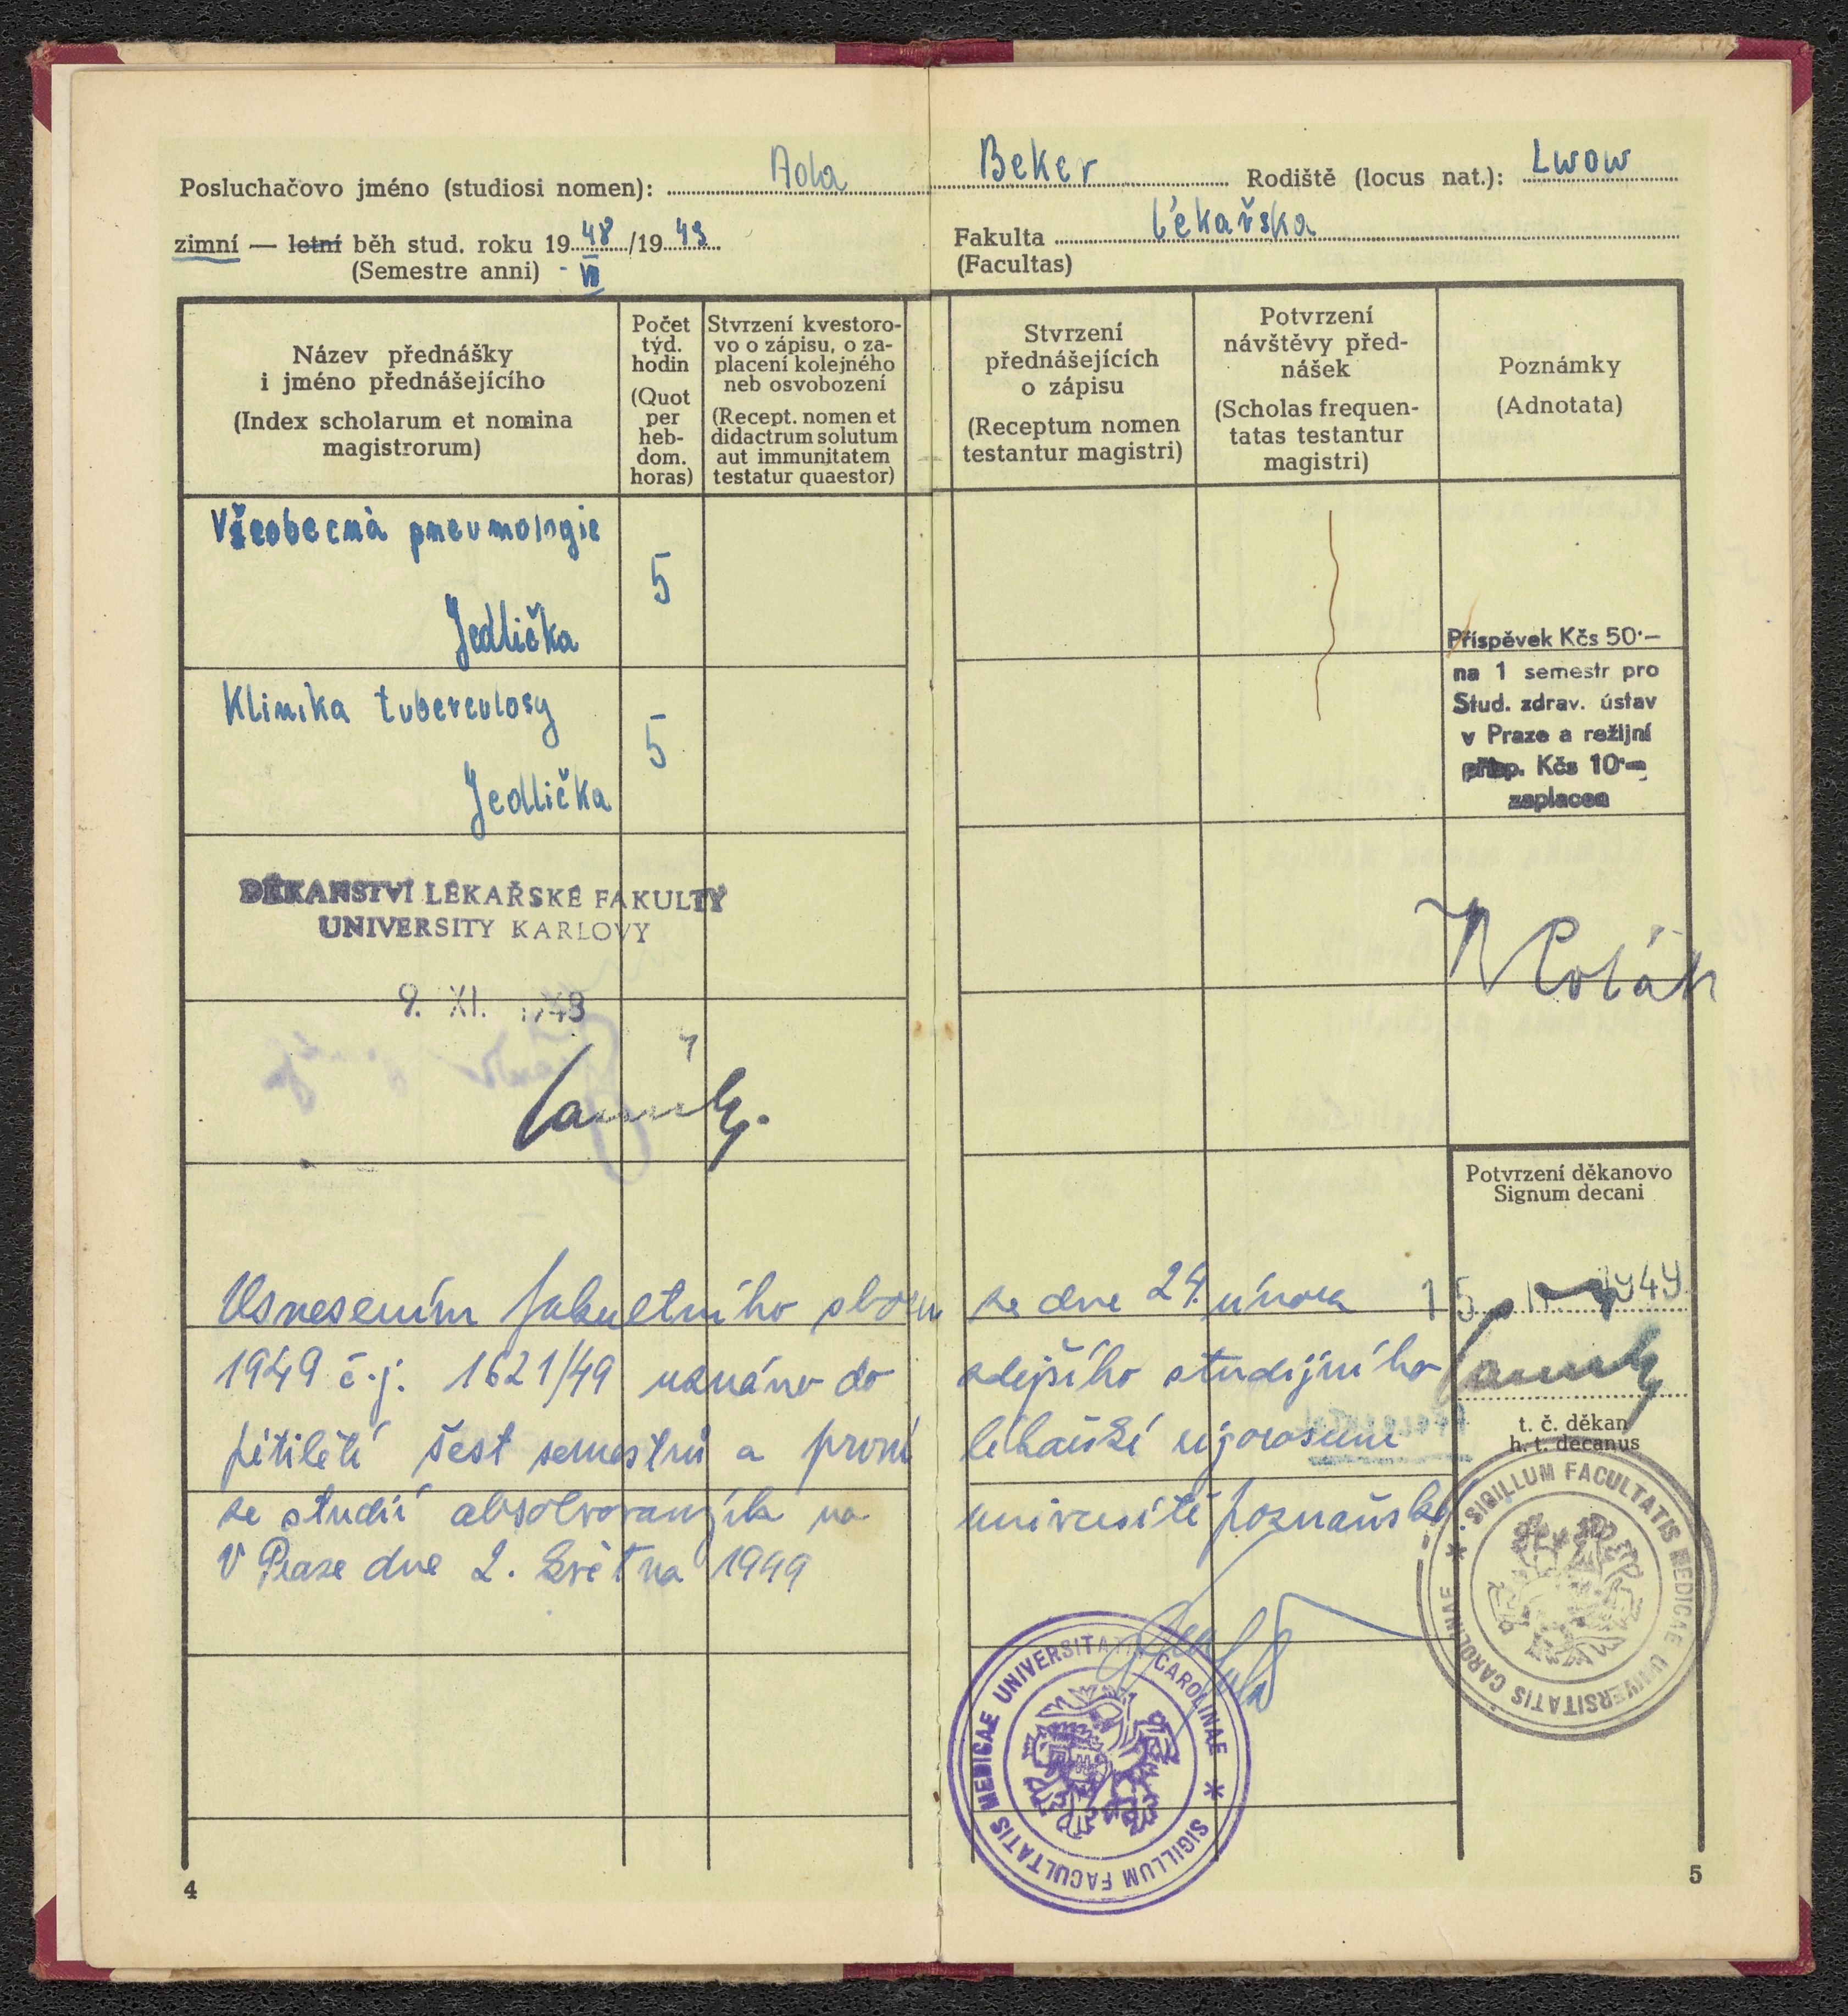 Posluchačovo jméno (studiosi nomen): Ada Beker Rodiště (locus nat.): Lwow
zimní — letní běh stud. roku 1948/1949 Fakulta lékařska
(Semestre anni) - VII (Facultas)
Název přednášky
i jméno přednášejícího
(Index scholarum et nomina
magistrorum)
Počet
týd.
hodin
(Quot
per
heb-
dom.
horas)
Stvrzení kvestoro-
vo o zápisu, o za-
placení kolejného
neb osvobození
(Recept. nomen et
didactrum solutum
aut immunitatem
testatur quaestor)
Stvrzení
přednášejících
o zápisu
(Receptum nomen
testantur magistri)
Potvrzení
návštěvy před-
nášek
(Scholas frequen-
tatas testantur
magistri)
Poznámky
(Adnotata)
Všeobecná pneumologie
5
Jedlička
Klinika tuberculosy
5
Jedlička
Příspěvek Kčs 50·—
na 1 semestr pro
Stud. zdrav. ústav
v Praze a režijní
přísp. Kčs 10·—
zaplacen
DĚKANSTVÍ LÉKAŘSKÉ FAKULTY
UNIVERSITY KARLOVY
9. XI. 1948
Potvrzení děkanovo
Signum decani
Usnesením fakultního sboru ze dne 24. února
1949 č.j. 1621/49 uznáno do zdejšího studijního
pětiletí šest semestrů a první lékařské rigorosum
ze studií absolvovaných na universitě poznaňské
V Praze dne 2. května 1949
15 1949
t. č. děkan
h. t. decanus
* SIGILLUM FACULTATIS MEDICAE UNIVERSITATIS CAROLINAE
* SIGILLUM FACULTATIS MEDICAE UNIVERSITATIS CAROLINAE
4
5